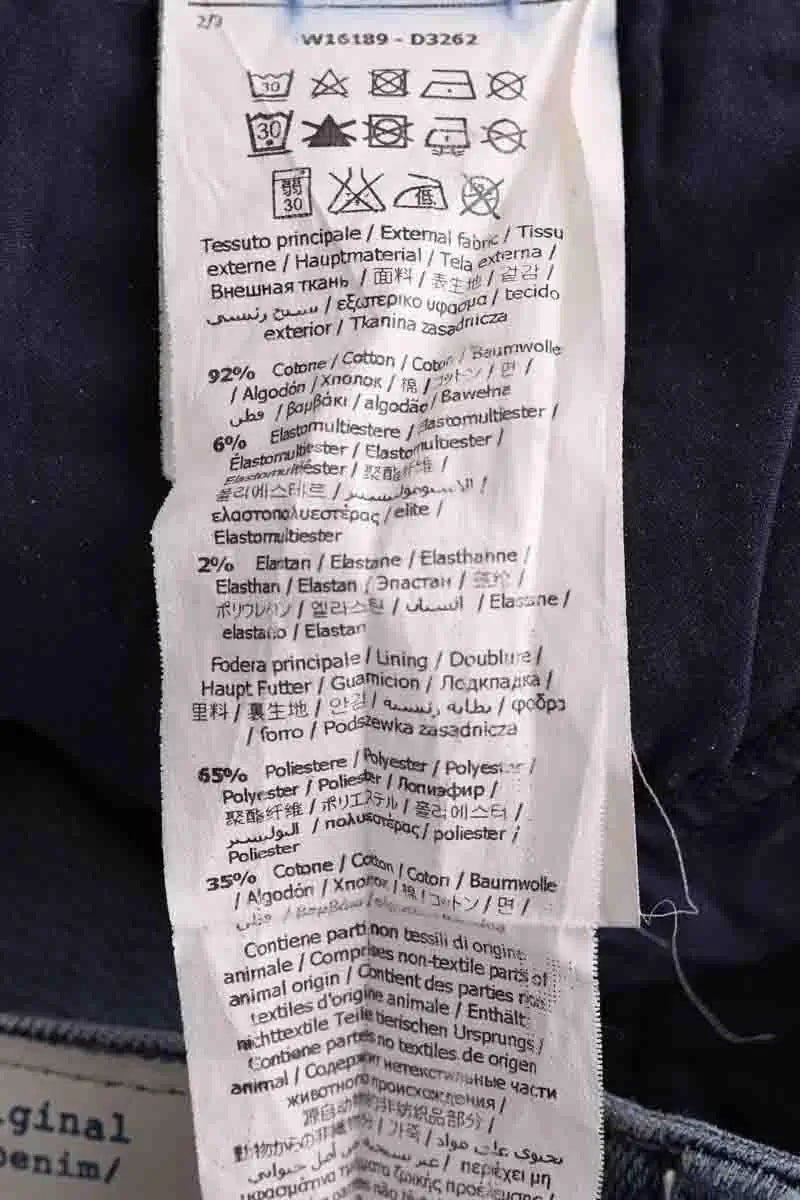 2/9
W16189 - D3262
30
30
弱
30
低
Tessuto principale / External fabric / Tissu
externe / Hauptmaterial / Tela externa /
Внешная ткань / 面料 / 表生地 / 겉감 /
نسيج رئيسي / εξωτερικο υφασμα / tecido
exterior / Tkanina zasadnicza
92% Cotone / Cotton / Coton / Baumwolle
/ Algodón / Хлопок / 棉 / コットン / 면 /
قطن / βαμβάκι / algodão / Bawełna
6% Elastomultiestere / Elastomultiester /
Élastomultiester / Elastomultiester /
Elastomultiéster / 聚酯纤维 /
폴리에스테르 /
ελαστοπολυεστέρας / elite /
Elastomultiester
2% Elastan / Elastane / Elasthanne /
Elasthan / Elastan / Эластан / 氨纶 /
ポリウレタン / 엘라스틴 / انستان / Elastane /
elastano / Elastan
Fodera principale / Lining / Doublure /
Haupt Futter / Guarnicion / Подкладка /
里料 / 裏生地 / 안감 / بطانة رئيسية / φοδρα
/ forro / Podszewka zasadnicza
65% Poliestere / Polyester / Polyester /
Polyester / Poliester / Полиэфир /
聚酯纤维 / ポリエステル / 폴리에스터 /
البوليستر / πολυεστέρας / poliester /
Poliester
35% Cotone / Cotton / Coton / Baumwolle
/ Algodón / Хлопок / 棉 / コットン / 면 /
قطن / βαμβάκι /
Contiene parti non tessili di origine
animale / Comprises non-textile parts of
animal origin / Contient des parties non
textiles d'origine animale / Enthält
nichttextile Teile tierischen Ursprungs /
Contiene partes no textiles de origen
animal / Содержит нетекстильные части
животного происхождения /
源自动物的非纺织品部分 /
動物からの非繊維部分 / 가죽 / تحتوي على مواد
غير نسيجية من أصل حيواني / περιέχει μη
υφασμάτινα τμήματα ζωικής προέλευσης /
iginal
Denim/